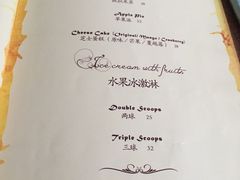 Apple Pie
苹果派
Cheese Cake (Original/Mango/Cranberry)
芝士蛋糕(原味/芒果/蔓越莓)
Ice cream with fruits
水果冰激淋
Double Scoops
两球 25
Triple Scoops
三球 32